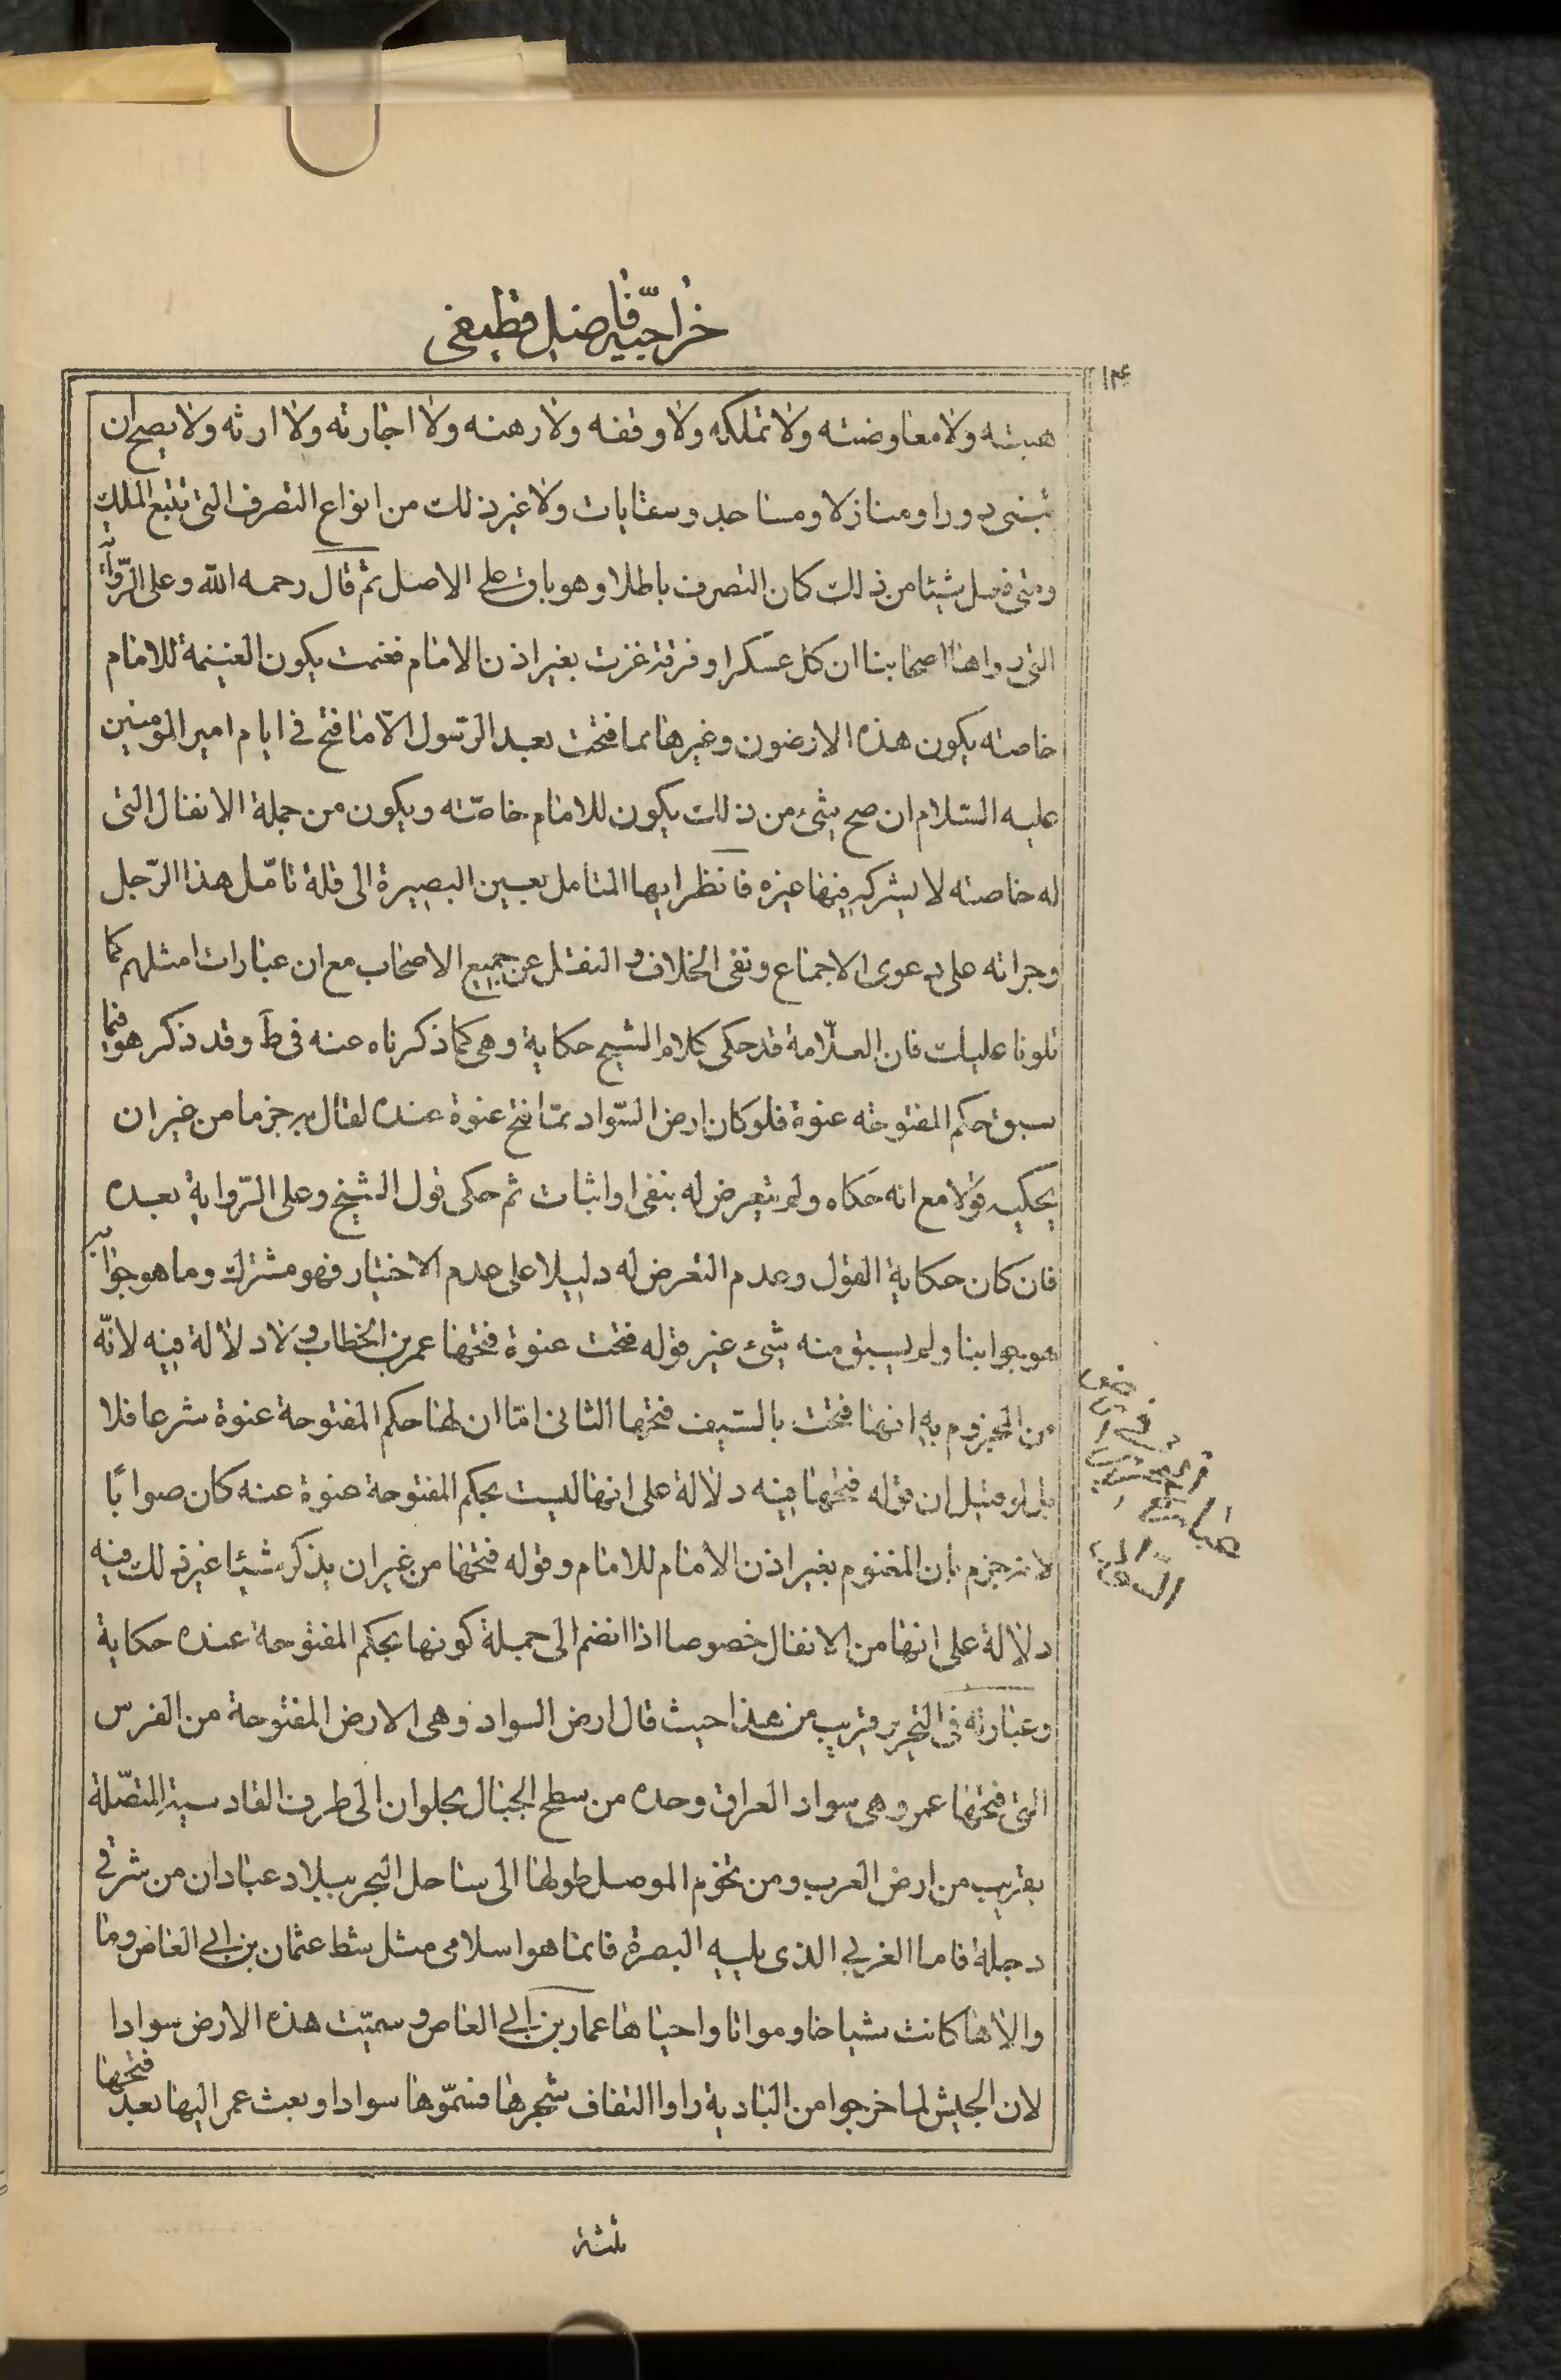 خراجیّه فاضل قطیفی
۱۲۴
هبته ولا معاوضته ولا تملكه ولا وقفه ولا رهنه ولا اجارته ولا ارثه ولا يصح ان
يبنى دورا ومنازلا ومساجد وسقايات ولا غير ذلك من انواع التصرف التى يتبع الملك
ومتى فعل شيئا من ذلك كان التصرف باطلا وهو باق على الاصل ثم قال رحمه الله وعلى الرّواية
التى رواها اصحابنا ان كل عسكر او فرقة غزت بغير اذن الامام فغنمت يكون الغنيمة للامام
خاصته يكون هذه الارضون وغيرها مما فتحت بعد الرّسول الّا ما فتح فى ايام امير المؤمنين
عليه السّلام ان صح شئ من ذلك يكون للامام خاصّته ويكون من جملة الانفال التى
له خاصته لا يشركه فيها غيره فانظر ايها المتامل بعين البصيرة الى قلة تامّل هذا الرّجل
وجراته على دعوى الاجماع ونفى الخلاف والنقل عن جميع الاصحاب مع ان عبارات امثلهم كما
تلونا عليك فان العلّامة قد حكى كلام الشيخ حكاية وهى كما ذكرناه عنه فى ط وقد ذكر هو فيما
سبق حكم المفتوحه عنوة فلو كان ارض السّواد ممّا فتح عنوة عنده لقال به جزما من غير ان
يحكيه قولا مع انه حكاه ولم يتعرض له بنفى او اثبات ثم حكى قول الشيخ وعلى الرّواية بعده
فان كان حكاية القول وعدم التعرض له دليلا على عدم الاختيار فهو مشترك وما هو جوابه
هو جوابنا ولم يسبق منه شئ غير قوله فتحت عنوة فتحها عمر بن الخطاب ولا دلالة فيه لانّه
من المجزوم به انها فتحت بالسّيف فتحها الثانى امّا ان لها حكم المفتوحة عنوة شرعا فلا
بل لو قيل ان قوله فتحها فيه دلالة على انها ليست بحكم المفتوحة عنوة عنه كان صوابًا
لانه جزم بان المغنوم بغير اذن الامام للامام وقوله فتحها من غير ان يذكر شيئا غير ذلك فيه
دلالة على انها من الانفال خصوصا اذا انضم الى جملة كونها بحكم المفتوحة عنده حكاية
وعبارته فى التحرير قريب من هذا حيث قال ارض السواد وهى الارض المفتوحة من الفرس
التى فتحها عمر وهى سواد العراق وحده من سطح الجبال بحلوان الى طرف القادسية المتصّلة
بقريب من ارض العرب ومن تخوم الموصل طولها الى ساحل البحر ببلاد عبادان من شرقى
دجلة فاما الغربى الذى يليه البصرة فانما هو اسلامى مثل شط عثمان بن ابى العاص وما
والاها كانت سباخا ومواتا واحياها عمار بن ابى العاص وسميّت هذه الارض سوادا
لان الجيش لما خرجوا من البادية راوا التفاف شجرها فسمّوها سوادا وبعث عمر اليها بعد فتحها
ثلثة